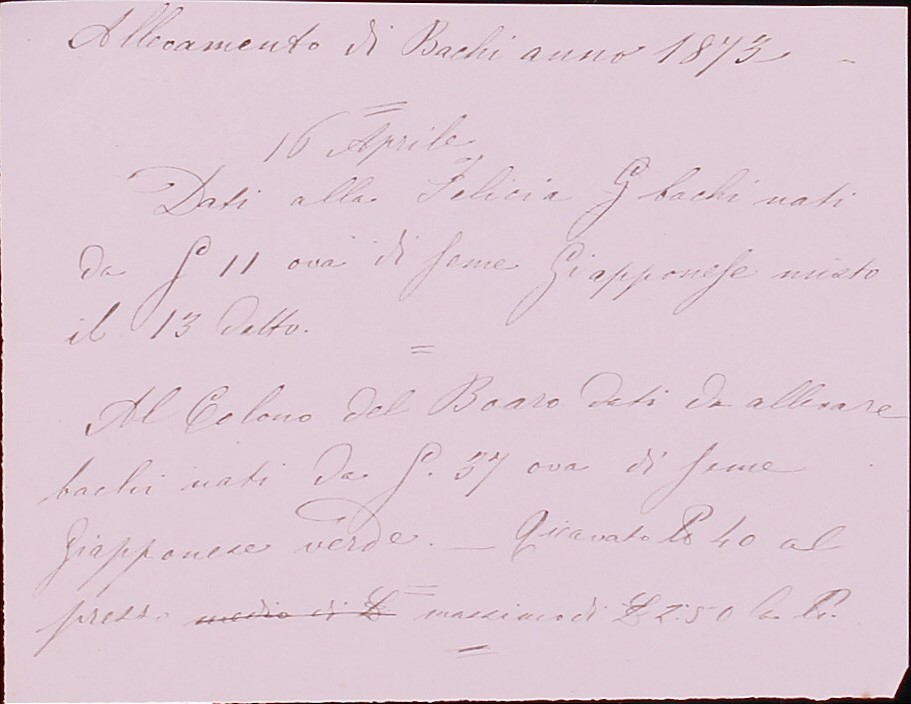 Allevamento di Bachi anno 1873
16 Aprile
Dati alla Felicia G bachi nati
da G 11 ova di seme Giapponese misto
il 13 detto.
Al Colono del Boaro dati da allevare
bachi nati da G. 37 ova di seme
Giapponese verde. — Ricavato 40 al
prezzo medio di £ massimo di £ 2:50 la